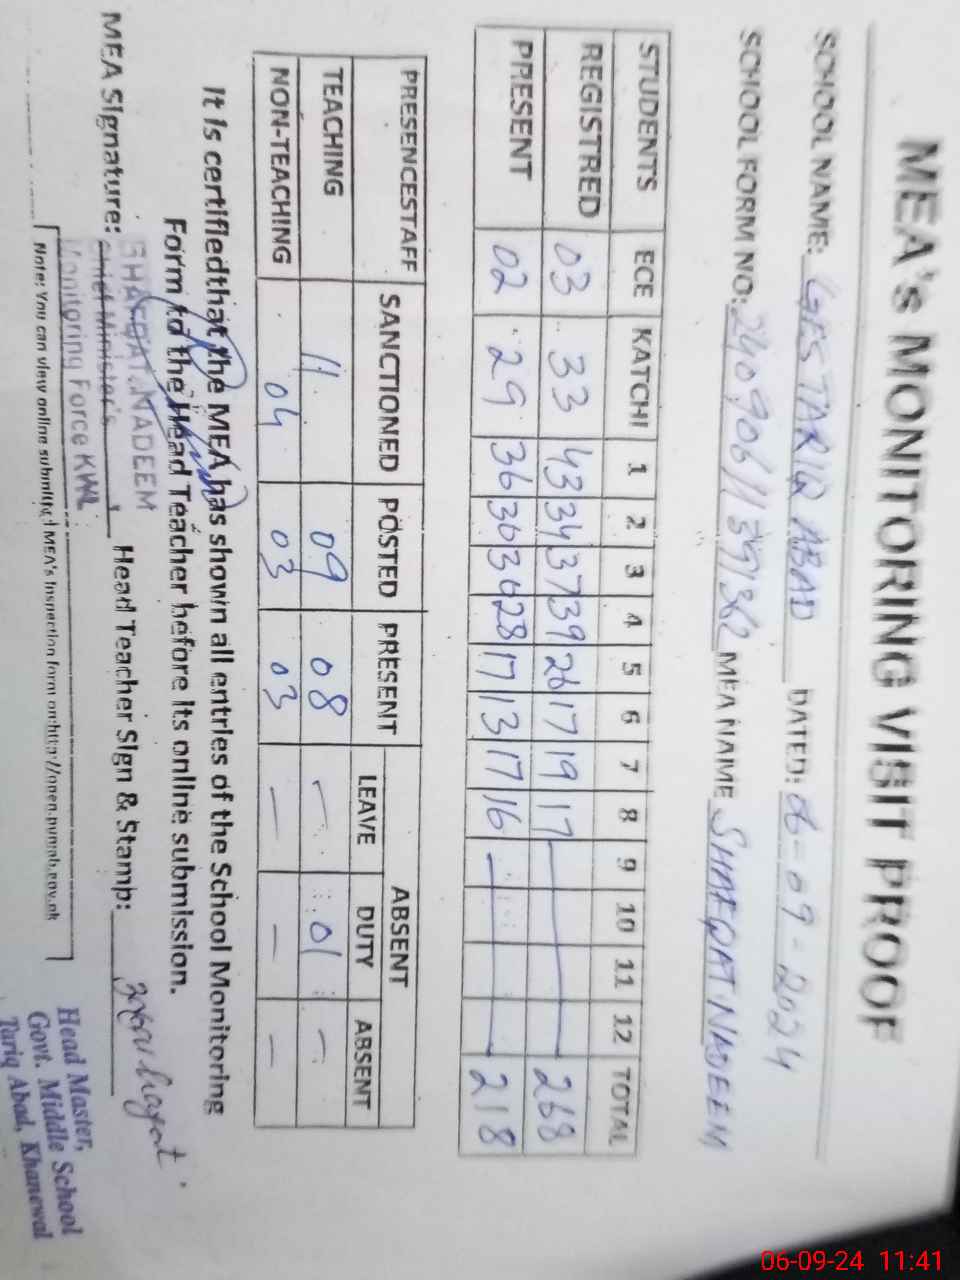 MEA's MONITORING VISIT PROOF
SCHOOL NAME: GES TARIQ ABAD DATED: 06-09-2024
SCHOOL FORM NO: MEA NAME SHAFQAT NADEEM
STUDENTS ECE KATCHI 1 2 3 4 5 6 7 8 9 10 11 12 TOTAL
REGISTRED 03 33 43 34 37 39 26 17 19 17 268
PRESENT 02 29 36 36 36 28 17 13 17 16 218
PRESENCESTAFF SANCTIONED POSTED PRESENT ABSENT
LEAVE DUTY ABSENT
TEACHING 11 09 08 - 01 -
NON-TEACHING 04 03 03 - - -
It is certifiedthat the MEA has shown all entries of the School Monitoring
Form to the Head Teacher before its online submission.
SHAFQAT NADEEM
MEA Signature: Chief Minister's Head Teacher Sign & Stamp:
Monitoring Force KWL
Note: You can view online submitted MEA's Inspection form on:http://open.punjab.gov.pk
Head Master,
Govt. Middle School
Tariq Abad, Khanewal
06-09-24 11:41